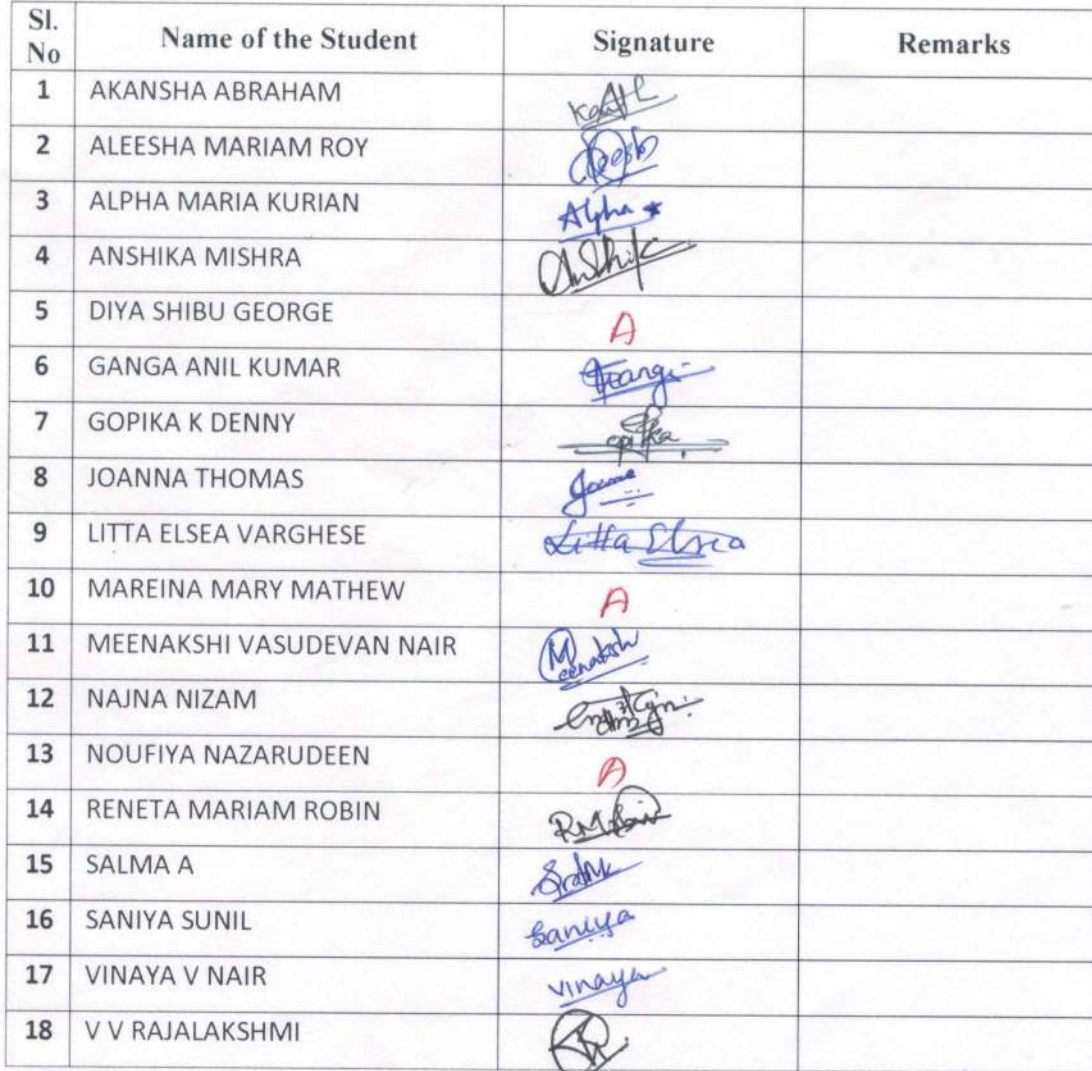 Sl. No Name of the Student Signature Remarks
1 AKANSHA ABRAHAM
2 ALEESHA MARIAM ROY
3 ALPHA MARIA KURIAN Alpha
4 ANSHIKA MISHRA
5 DIYA SHIBU GEORGE A
6 GANGA ANIL KUMAR
7 GOPIKA K DENNY
8 JOANNA THOMAS
9 LITTA ELSEA VARGHESE Litta Elsea
10 MAREINA MARY MATHEW A
11 MEENAKSHI VASUDEVAN NAIR Meenakshi
12 NAJNA NIZAM
13 NOUFIYA NAZARUDEEN A
14 RENETA MARIAM ROBIN
15 SALMA A
16 SANIYA SUNIL Saniya
17 VINAYA V NAIR vinaya
18 V V RAJALAKSHMI